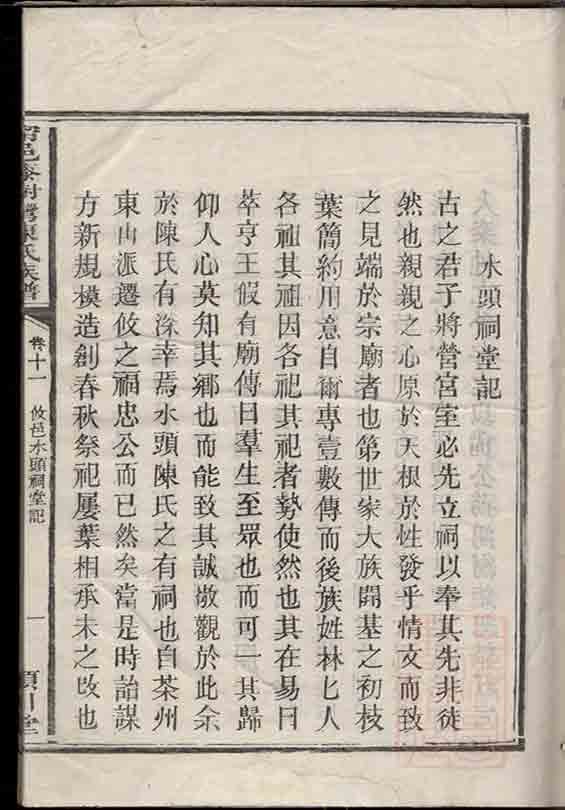 水頭祠堂記
古之君子將營宮室必先立祠以奉其先非徒
然也親親之心原於天根於性發乎情文而致
之見端於宗廟者也第世家大族開基之初枝
葉簡約用意自爾專壹數傳而後族姓林匕人
各祖其祖因各祀其祀者勢使然也其在易曰
萃亨王假有廟傳曰羣生至眾也而可一其歸
仰人心莫知其鄉也而能致其誠敬觀於此余
於陳氏有深幸焉水頭陳氏之有祠也自茶州
東山派遷攸之福忠公而已然矣當是時詒謀
方新規模造創春秋祭祀屢葉相承未之改也
邑 陳氏族譜
卷十一
攸邑水頭祠堂記
一
潁川堂